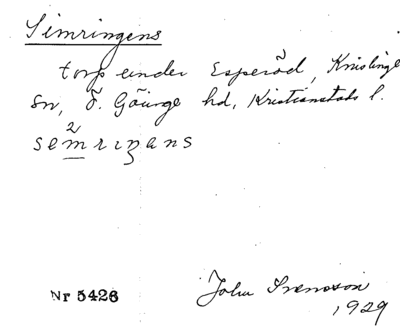 Simringens
torp under Esperöd, Knislinge
sn, ö. Göinge hd, Kristianstads l.
se2mriŋans
Nr 5426
John Svensson
1929